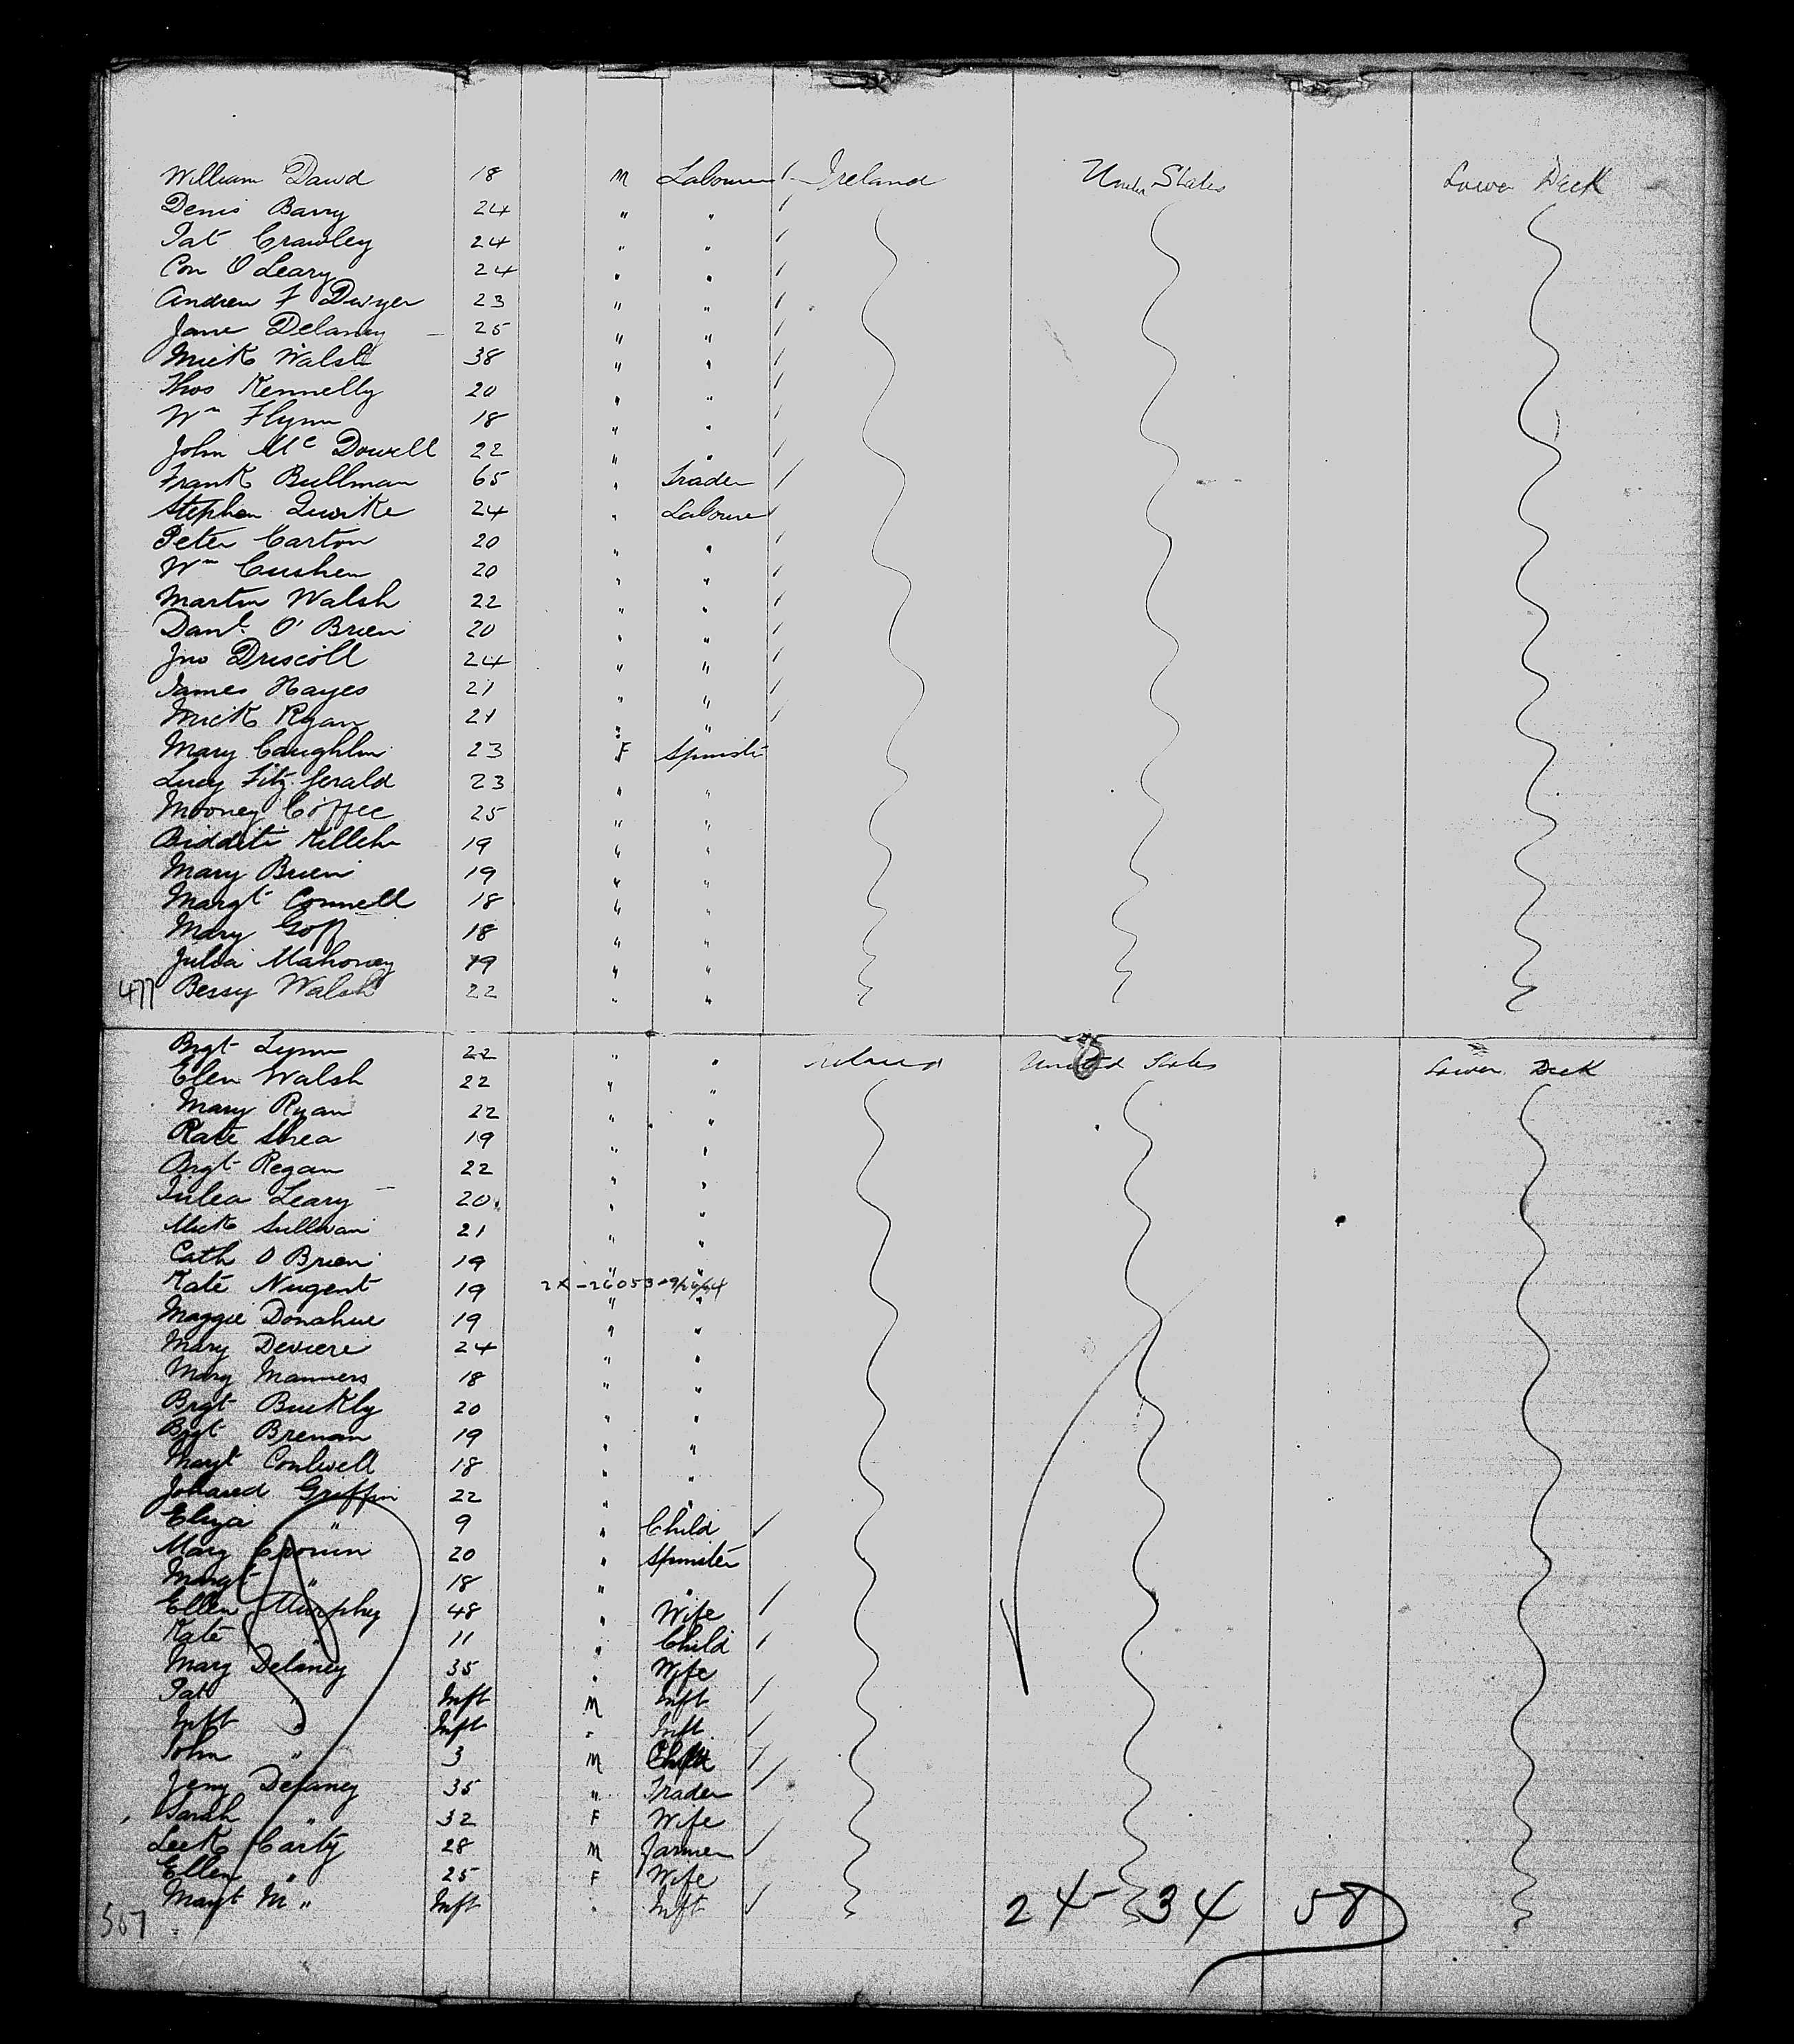 William Dawd 18 M Labourer Ireland United States Lower Deck
Denis Barry 24 " "
Pat Crawley 24 " "
Con O Leary 24 " "
Andrew F Dwyer 23 " "
Jane Delaney 25 " "
Mick Walsh 38 " "
Thos Kennelly 20 " "
Wm Flynn 18 " "
John Mc Dowell 22 " "
Frank Bullman 65 " Trader
Stephen Quirke 24 " Labourer
Peter Carton 20 " "
Wm Cushen 20 " "
Martin Walsh 22 " "
Danl. O' Brien 20 " "
Jno Driscoll 24 " "
James Hayes 21 " "
Mick Ryan 21 " "
Mary Coughlin 23 F Spinster
Lucy Fitz Gerald 23 " "
Mooney Coffee 25 " "
19 " "
Mary Brien 19 " "
Margt Connell 18 " "
Mary Goff 18 " "
Julia Mahoney 19 " "
477 Bessy Walsh 22 " "
Brgt Lynn 22 " " Ireland United States Lower Deck
Elen Walsh 22 " "
Mary Ryan 22 " "
Kate Shea 19 " "
Brgt Regan 22 " "
Julea Leary 20 " "
Mick Sullivan 21 " "
Cath O Brien 19 " "
Kate Nugent 19 2X-26053-9/26/64 " "
Maggie Donahue 19 " "
Mary Deviere 24 " "
Mary Manners 18 " "
Brgt Buckly 20 " "
Brgt Brenan 19 " "
Margt 18 " "
Griffin 22 " "
Eliza " 9 " Child
Mary Cronin 20 " Spinster
Margt " 18 " "
Ellen Murphy 48 " Wife
Kate " 11 " Child
Mary Delaney 35 " Wife
Pat " Inft M Inft
Inft " Inft - Inft
John " 3 M Child
Jeny Delaney 35 " Trader
Sarah " 32 F Wife
Carty 28 M Farmer
Ellen " 25 F Wife
Margt M " Inft " Inft
507 24 34 58